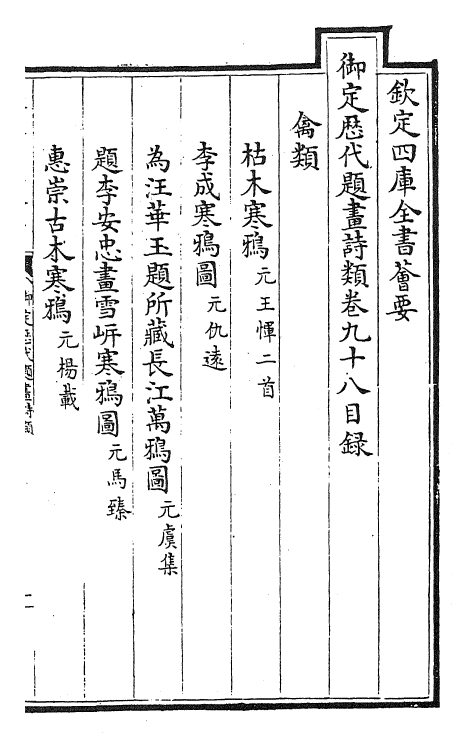 欽定四庫全書薈要
御定歷代題畫詩類卷九十八目録
禽類
枯木寒鴉 元王惲二首
李成寒鴉圖 元仇遠
為汪華玉題所藏長江萬鴉圖 元虞集
題李安忠畫雪岍寒鴉圖 元馬臻
惠崇古木寒鴉 元楊載
御定歷代題畫詩類